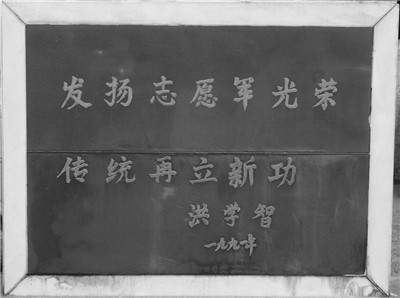 发扬志愿军光荣
传统再立新功
洪学智
一九九一年